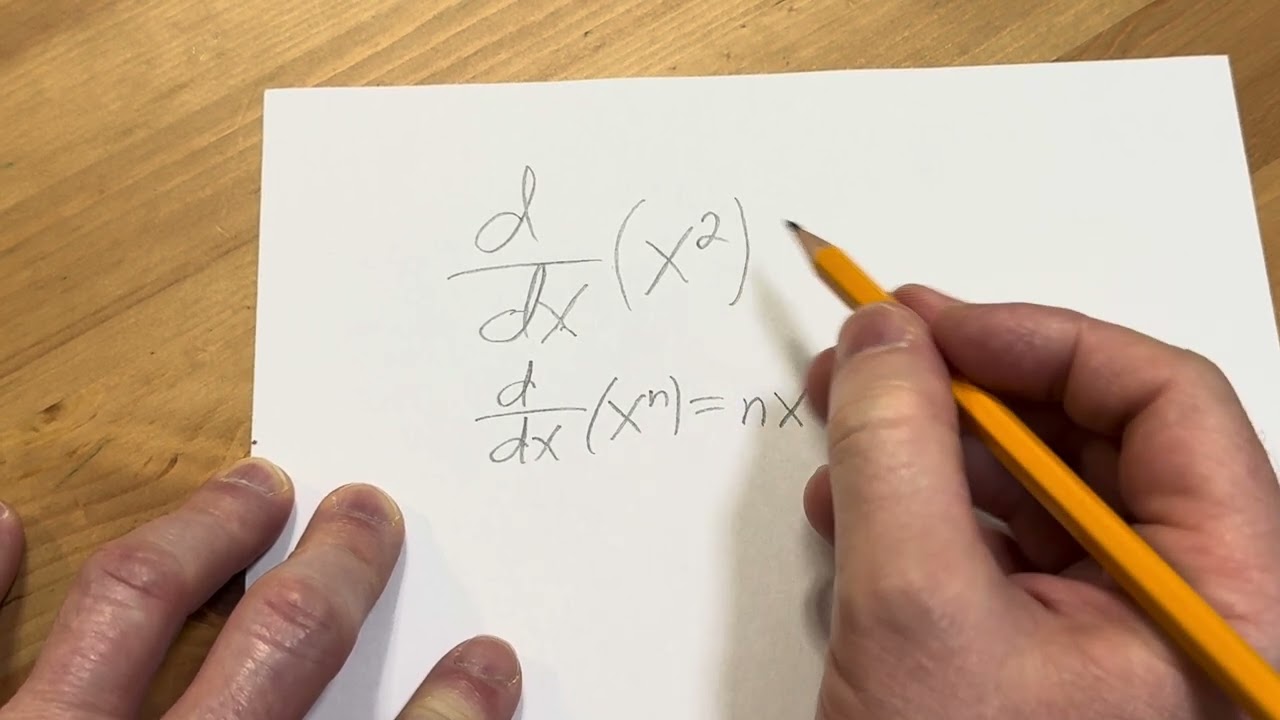 d/dx (x²)
d/dx (xⁿ) = nx